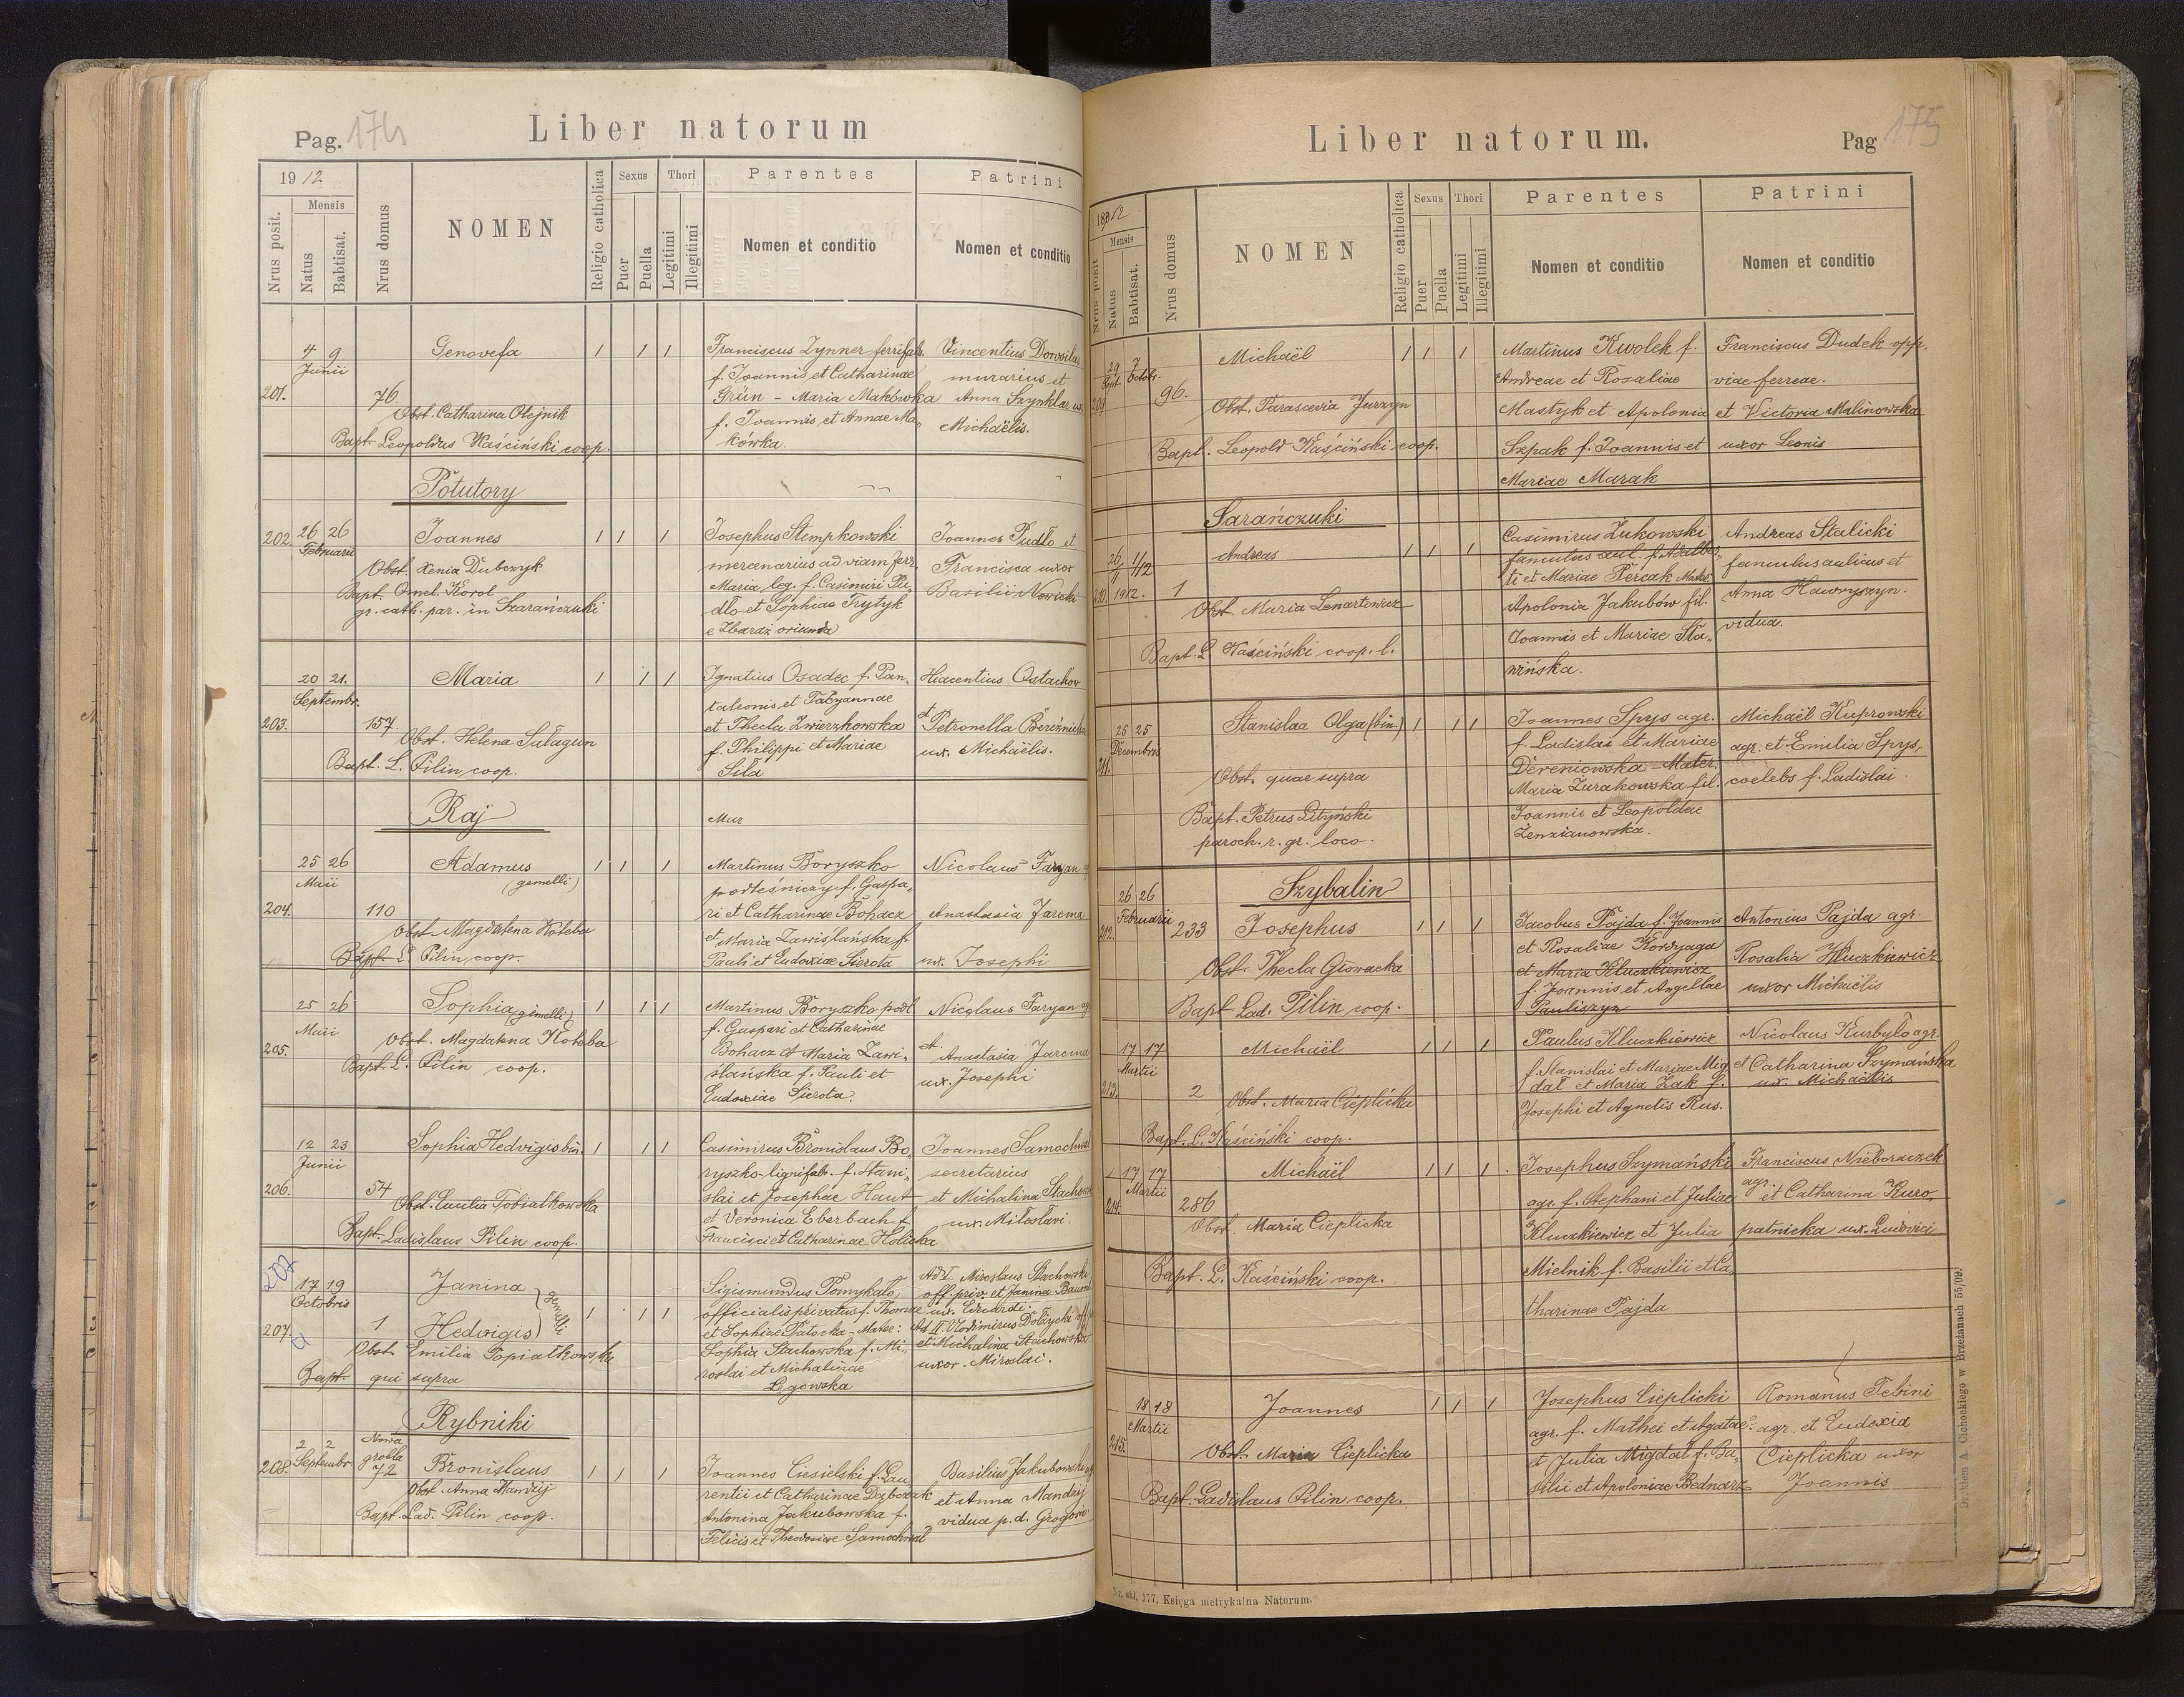 Pag. 174
Liber natorum
1912
Mensis
Nrus posit.
Natus
Babtisat.
Nrus domus
NOMEN
Religio catholica
Sexus
Puer
Puella
Thori
Legitimi
Illegitimi
Parentes
Nomen et conditio
Patrini
Nomen et conditio
201.
4 9
Junii
76.
Genovefa
1 1 1
Obst. Catharina Olejnik
Bapt. Leopoldus Kaściński coop.
Franciscus Zynner ferrifabr.
f. Joannis et Catharinae
Grün – Maria Makówka
f. Joannis et Annae Ma-
kówka.
Vincentius
murarius et
Anna Szynklar ux.
Michaëlis.
Potutory
202.
26 26
Februarii
Joannes
1 1 1
Obst. Xenia Dubczyk
Bapt. Omel. Korol
gr. cath. par. in Szarańczuki
Josephus Stempkowski
mercenarius ad viam ferr.
Maria leg. f. Casimiri Pu-
dło et Sophiae Trytyk
e Zbaraż oriunda
Joannes Pudło et
Francisca uxor
Basilii Nowicki
203.
20 21.
Septembr.
157.
Maria
1 1 1
Obst. Helena Sałagun
Bapt. L. Pilin coop.
Ignatius Osadec f. Pan-
taleonis et Fabyannae
et Thecla Zwierzkowska
f. Philippi et Mariae
Siła
Hiacentius Ostachow
et Petronella
ux. Michaëlis.
Raj
Mar
204.
25 26
Maii
110
Adamus
(gemelli)
1 1 1
Obst. Magdalena Koteba
Bapt. L. Pilin coop.
Martinus Boryszko
podleśniczy f. Gaspa-
ri et Catharinae Bohacz
et Maria Zawiślańska f.
Pauli et Eudoxiae Sierota
Nicolaus Faryan
Anastasia Jarema
ux. Josephi
205.
25 26
Maii
Sophia (gemelli)
1 1 1
Obst. Magdalena Koteba
Bapt. L. Pilin coop.
Martinus Boryszko podl
f. Gaspari et Catharinae
Bohacz et Maria Zawi-
ślańska f. Pauli et
Eudoxiae Sierota.
Nicolaus Faryan
et Anastasia Jarema
ux. Josephi
206.
12 23
Junii
54
Sophia Hedvigis bin.
1 1 1
Obst. Emilia
Bapt. Ladislaus Pilin coop.
Casimirus Bronislaus Bo-
ryszko lignifabr. f. Stani-
slai et Josephae Haut
et Veronica Eberbach f.
Francisci et Catharinae Holicka
Joannes Samochwał
secretarius
et Michalina Stachows
ux. Miłosłavi.
207
17 19
Octobris
207.
1
Janina
Hedvigis
gemelli
1 1 1
Obst. Emilia Popiałkowska
Bapt. qui supra
Sigismundus Pomykało,
officialis privatus f. Thomae
et Sophiae Patocka – Mater:
Sophia Stachowska f. Mi-
roslai et Michalinae
Legowska
Ad I. Miroslaus Stachowski
off. priv. et Janina Bauml
ux. Eduardi.
Ad II. Vlodimirus Dobrzycki off
et Michalina Stachowska
uxor. Miroslai.
Rybniki
208.
2 2
Septembr.
Nowa
grobla
72
Bronislaus
1 1 1
Obst. Anna Mandzij
Bapt. Lad. Pilin coop.
Joannes Ciesielski f. Lau-
rentii et Catharinae Dąbczak
Antonina Jakubowska f.
Felicis et Theodosiae Samochwał
Basilius Jakubowski
et Anna Mandzij
vidua p. d. Gregorii
Liber natorum.
Pag 175
1912
Mensis
Nrus posit
Natus
Babtisat.
Nrus domus
NOMEN
Religio catholica
Sexus
Puer
Puella
Thori
Legitimi
Illegitimi
Parentes
Nomen et conditio
Patrini
Nomen et conditio
209.
29 7
Sept. Octobr.
96.
Michaël
1 1 1
Obst. Parascevia Jurzyn
Bapt. Leopold Kaściński coop.
Martinus Kwolek f.
Andreae et Rosaliae
Mastyk et Apolonia
Szpak f. Joannis et
Mariae Marak
Franciscus Dudek opp.
viae ferreae.
et Victoria Malinowska
uxor Leonis
Sarańczuki
210.
26/11 1/12
1912.
1
Andreas
1 1 1
Obst. Maria Lenartowicz
Bapt. L. Kaściński coop. l.
Casimirus Żukowski
famulus aul. f. Adalber-
ti et Mariae Percak Mater
Apolonia Jakubów fil.
Joannis et Mariae Sła-
wińska.
Andreas Stalicki
famulus aulicus et
Anna Hawryszyn.
vidua.
211.
25 25
Decembris
Stanislaa Olga (bin.)
1 1 1
Obst. quae supra
Bapt. Petrus Lityński
paroch. r. gr. loco.
Joannes Spys agr.
f. Ladislai et Mariae
Dereniowska – Mater.
Maria Żurakowska fil.
Joannis et Leopoldae
Zenzianowska.
Michaël Kuprowski
agr. et Emilia Spys,
coelebs f. Ladislai.
Szybalin
212.
26 26
Februarii
233
Josephus
1 1 1
Obst. Thecla Głowacka
Bapt. Lad. Pilin coop.
Jacobus Pajda f. Joannis
et Rosaliae Kordyaga
et Maria Kluczkiewicz
f. Joannis et Angellae
Pauliszyn
Antonius Pajda agr.
Rosalia Kluczkiewicz
uxor Michaëlis
213.
17 17
Martii
2
Michaël
1 1 1
Obst. Maria Cieplicka
Bapt. L. Kaściński coop.
Paulus Kluczkiewicz
f. Stanislai et Mariae Mig
dał et Maria Żak f.
Josephi et Agnetis Rus.
Nicolaus Kurbyło agr.
et Catharina Szymańska
ux. Michaëlis
214.
17 17
Martii
286
Michaël
1 1 1
Obst. Maria Cieplicka
Bapt. L. Kaściński coop.
Josephus Szymański
agr. f. Stephani et Juliae
Kluczkiewicz et Julia
Mielnik f. Basilii et Ca-
tharinae Pajda
Franciscus Nieboraczek
agr. et Catharina Kuro-
patnicka ux. Ludovici
215.
18 18
Martii
Joannes
1 1 1
Obst. Maria Cieplicka
Bapt. Ladislaus Pilin coop.
Josephus Cieplicki
agr. f. Mathei et Agatae
et Julia Migdał f. Ba-
silii et Apoloniae Bednarz
Romanus Tebini
agr. et Eudoxia
Cieplicka uxor
Joannis
Nr. skł. 177. Księga metrykalna Natorum.
Drukiem A Głuchockiego w Brzeżanach 55/09.